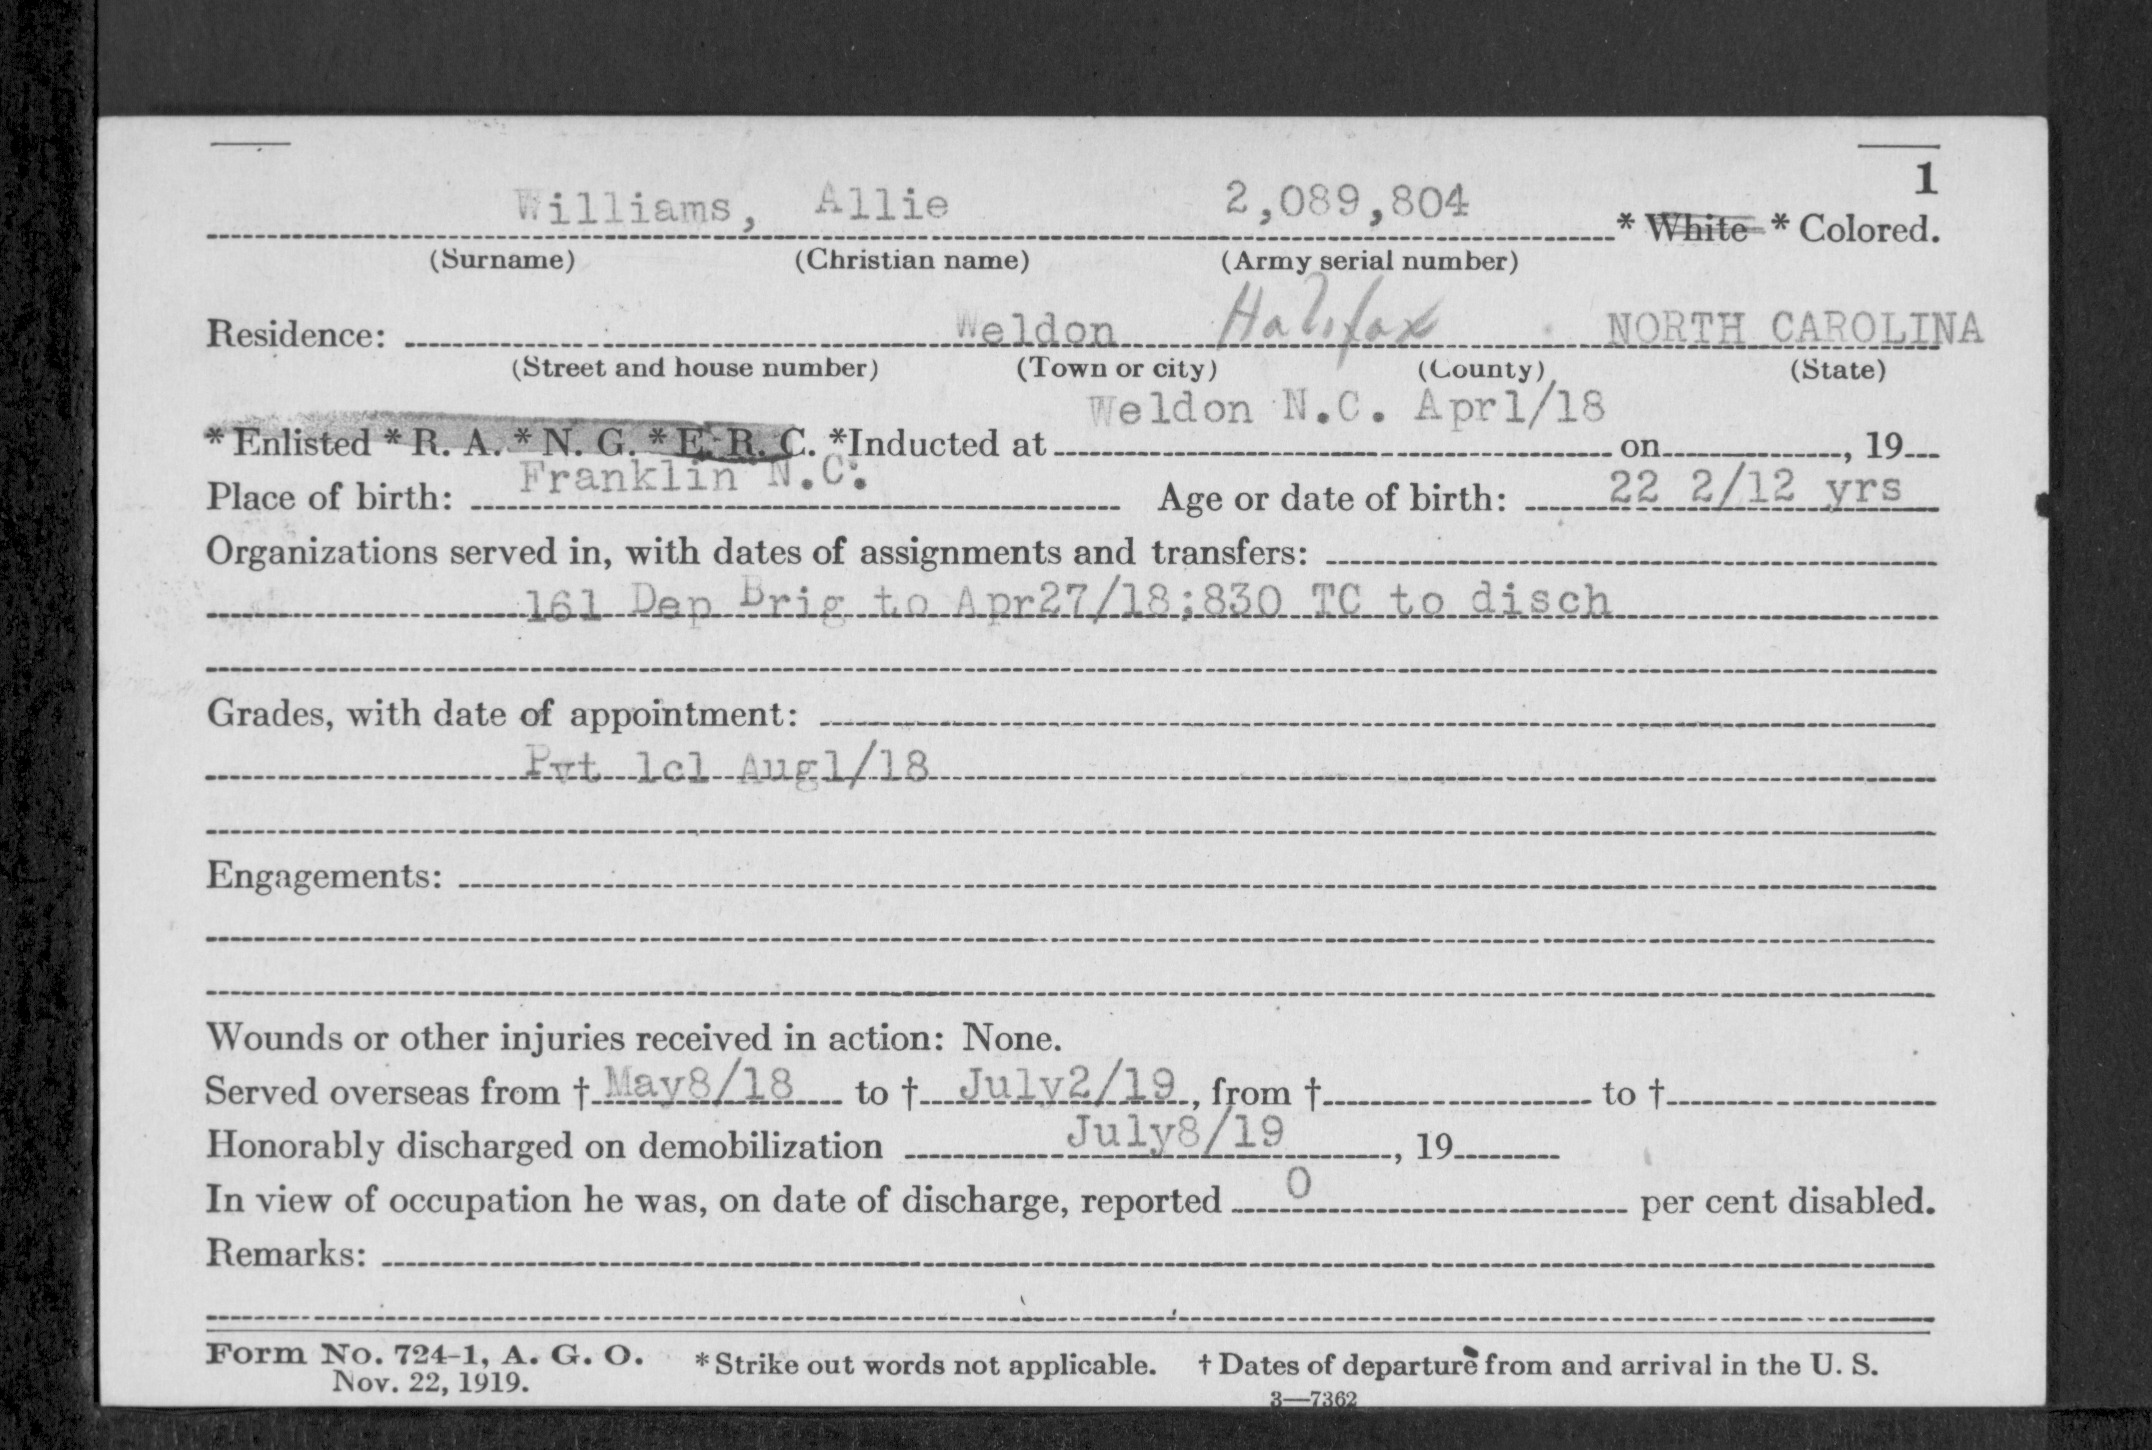 1
Williams, Allie 2,089,804 * White * Colored.
(Surname) (Christian name) (Army serial number)
Residence: Weldon Halifax NORTH CAROLINA
(Street and house number) (Town or city) (County) (State)
Weldon N.C. Apr1/18
* Enlisted * R. A. * N. G. * E. R. C. *Inducted at on , 19
Franklin N.C.
Place of birth: Age or date of birth: 22 2/12 yrs
Organizations served in, with dates of assignments and transfers:
161 Dep Brig to Apr27/18;830 TC to disch
Grades, with date of appointment:
Pvt 1cl Aug1/18
Engagements:
Wounds or other injuries received in action: None.
Served overseas from † May8/18 to † July2/19, from † to †
Honorably discharged on demobilization July8/19, 19
In view of occupation he was, on date of discharge, reported 0 per cent disabled.
Remarks:
Form No. 724-1, A. G. O. * Strike out words not applicable. † Dates of departure from and arrival in the U. S.
Nov. 22, 1919.
3—7362